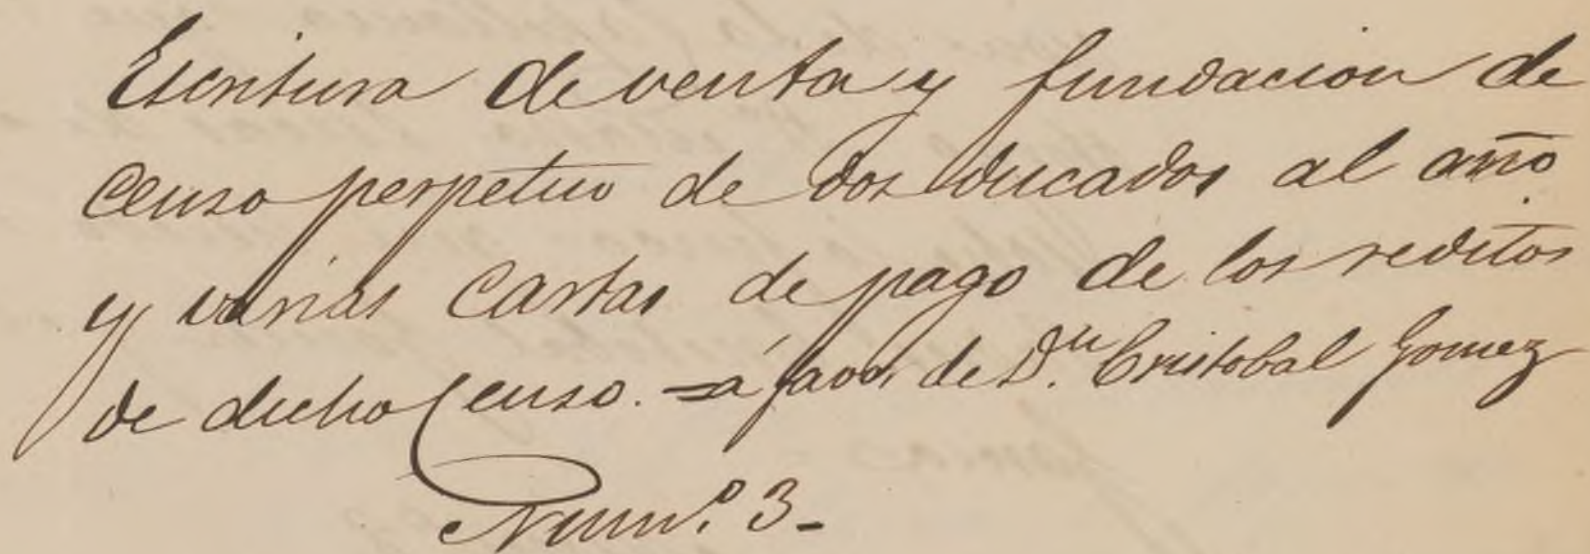 Escritura de venta y fundacion de
censo perpetuo de dos ducados al año
y varias cartas de pago de los reditos
de dicho Censo. = á favor de D.n Cristobal Gomez
Num.o 3_